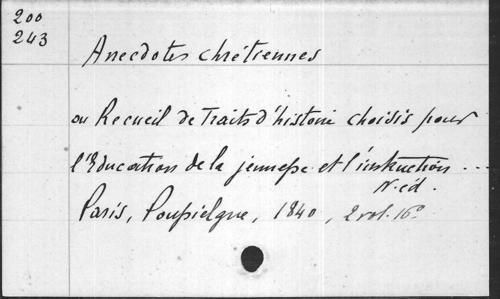 200
243
Anecdotes chrétiennes
ou Recueil de Traits d'histoire choisis pour
l'Education de la jeunesse et l'instruction ...
N. éd.
Paris, Poupielgue, 1840, 2 vol. 16º